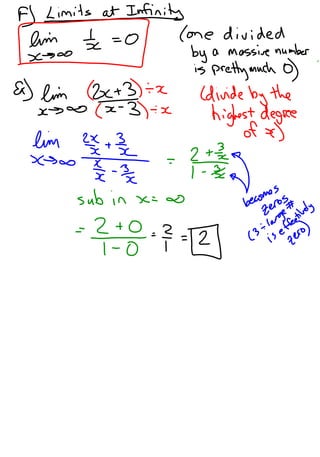 F) Limits at Infinity
lim x→∞ 1/x = 0
(one divided
by a massive number
is pretty much 0)
Ex) lim x→∞ (2x+3)÷x / (x-3)÷x
(divide by the
highest degree
of x)
lim x→∞ (2x/x + 3/x) / (x/x - 3/x) = (2 + 3/x) / (1 - 3/x)
becomes
zeros
(3÷large #
is effectively
zero)
sub in x = ∞
= (2+0)/(1-0) = 2/1 = 2